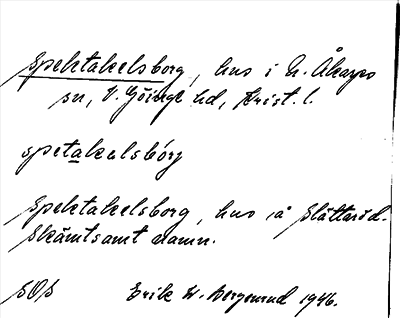 Spektakelsborg, hus i N. Åkarps
sn, V. Göinge hd, Krist. l.
spetakelsbórj
Spektakelsborg, hus på Slättaröd.
Skämtsamt namn.
SOS Erik W. Bergenrud 1946.